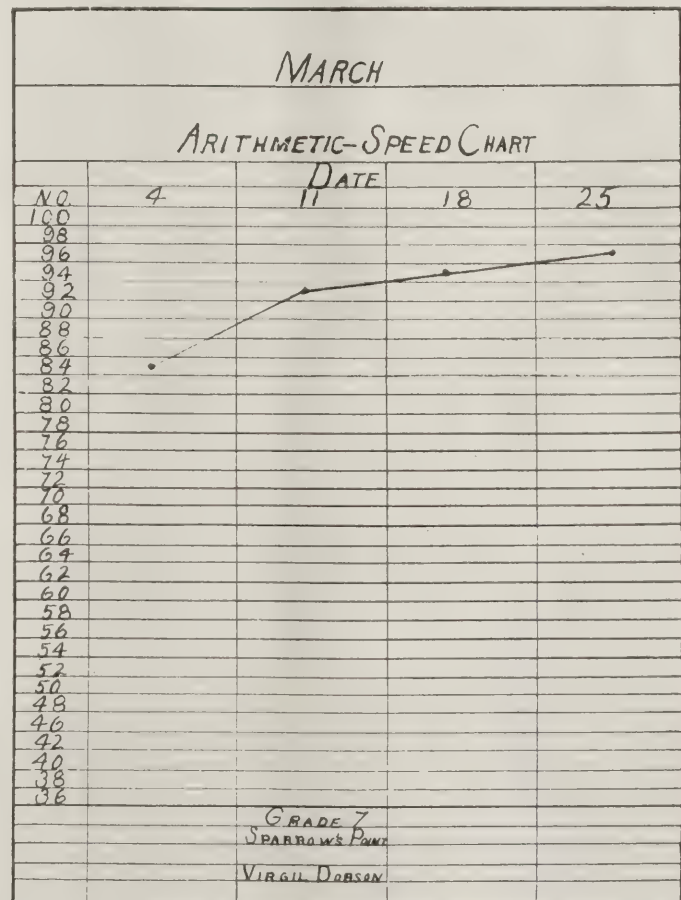 MARCH
ARITHMETIC-SPEED CHART
DATE
NO. 4 11 18 25
100
98
96
94
92
90
88
86
84
82
80
78
76
74
72
70
68
66
64
62
60
58
56
54
52
50
48
46
42
40
38
36
GRADE 7
SPARROW'S POINT
VIRGIL DOBSON